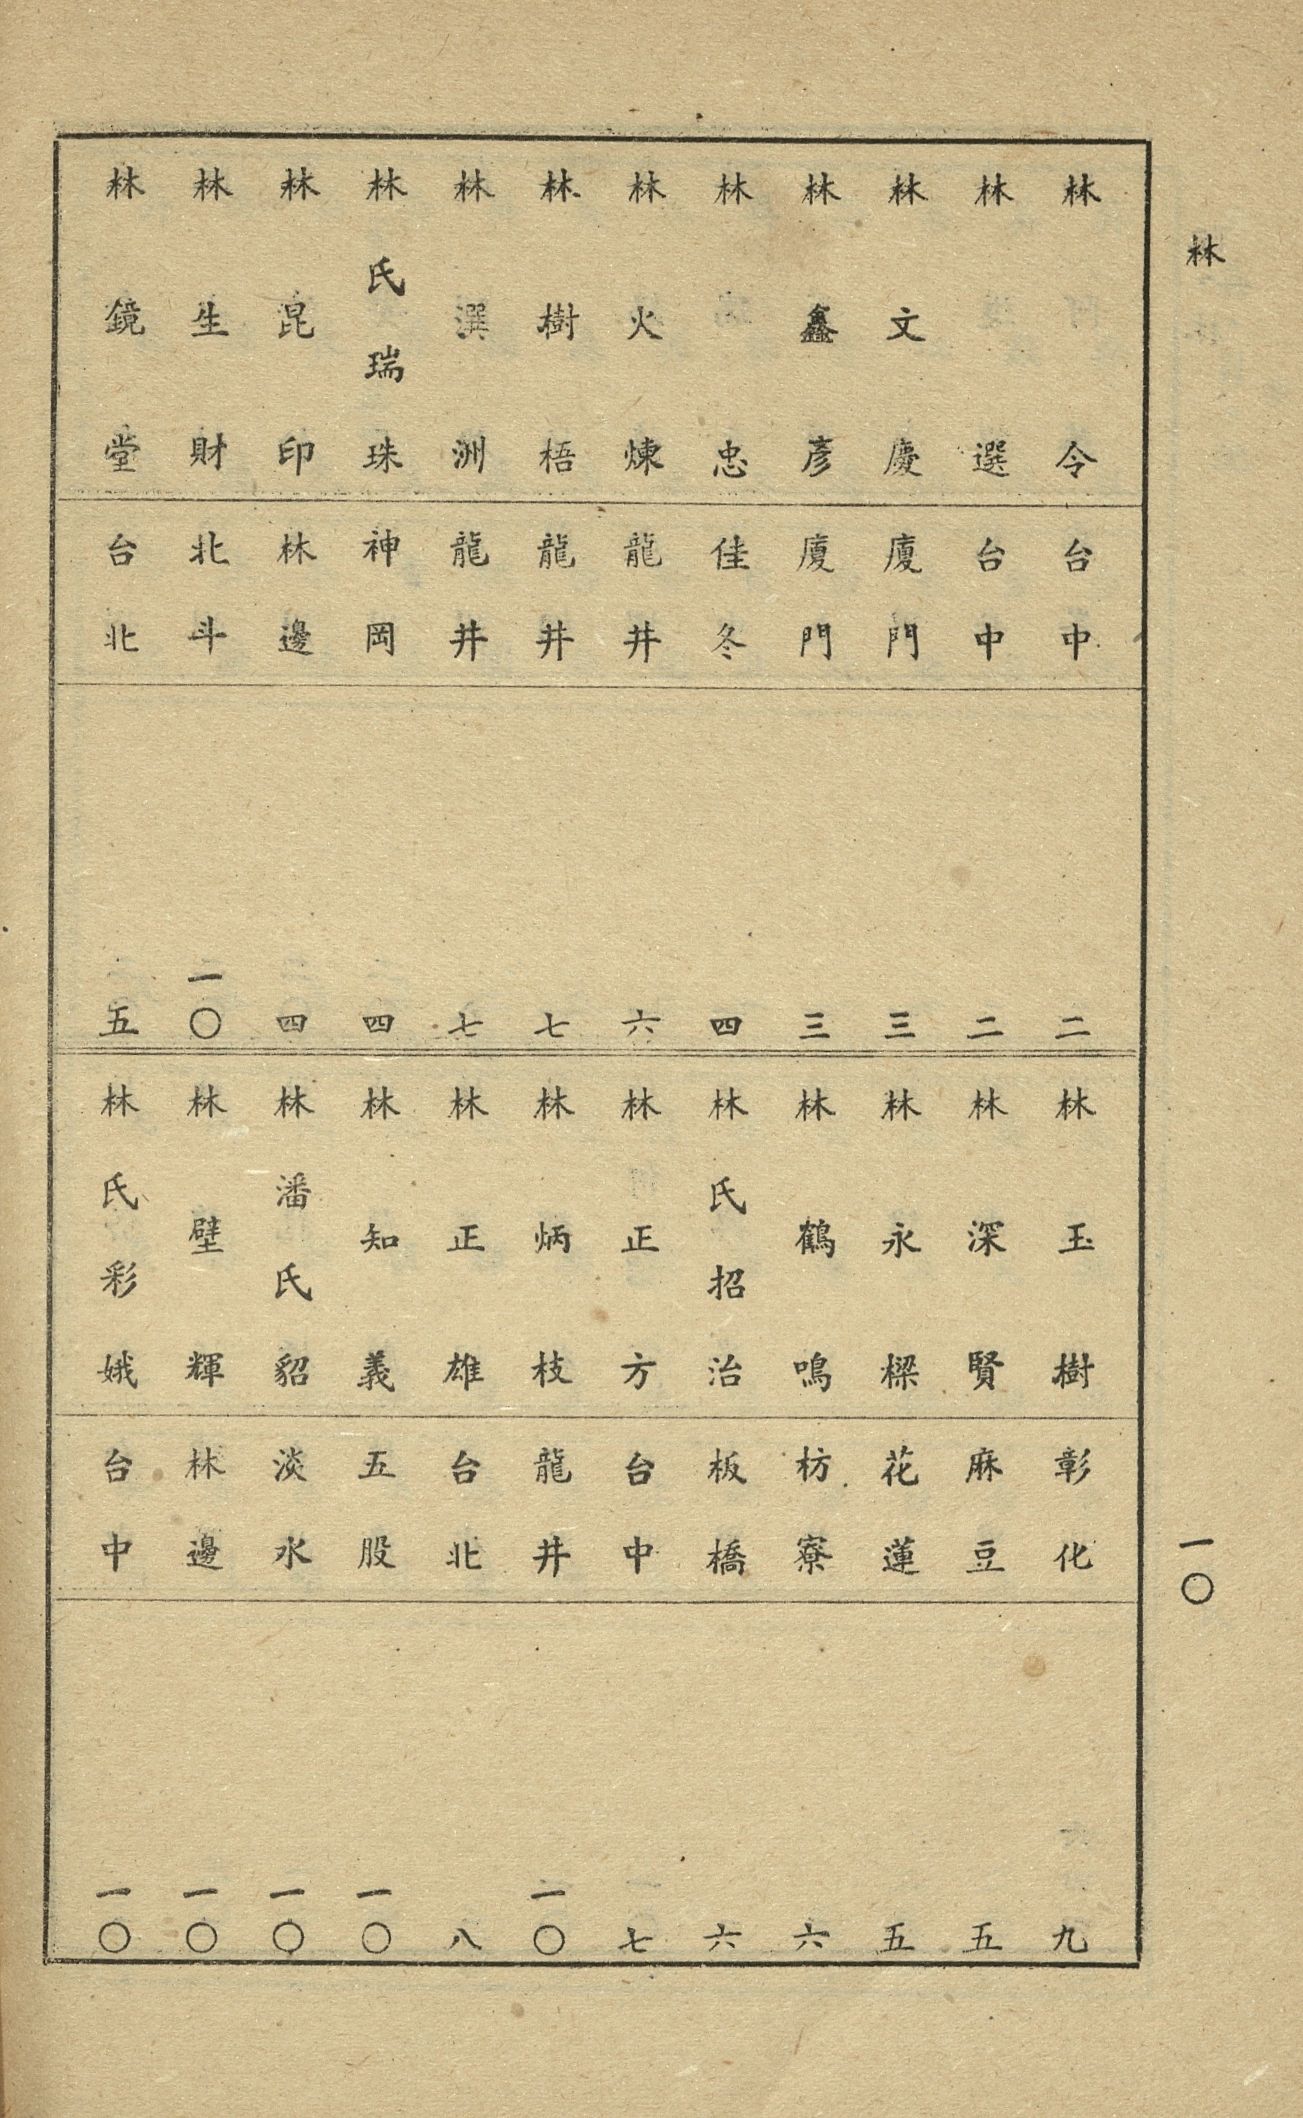 林
一〇
林令 台中 二
林選 台中 二
林文慶 廈門 三
林鑫彥 廈門 三
林忠 佳冬 四
林火煉 龍井 六
林樹梧 龍井 七
林潠洲 龍井 七
林氏瑞珠 神岡 四
林昆印 林邊 四
林生財 北斗 一〇
林鏡堂 台北 五
林玉樹 彰化 九
林深賢 麻豆 五
林永樑 花蓮 五
林鶴鳴 枋寮 六
林氏招治 板橋 六
林正方 台中 七
林炳枝 龍井 一〇
林正雄 台北 八
林知義 五股 一〇
林潘氏貂 淡水 一〇
林壁輝 林邊 一〇
林氏彩娥 台中 一〇